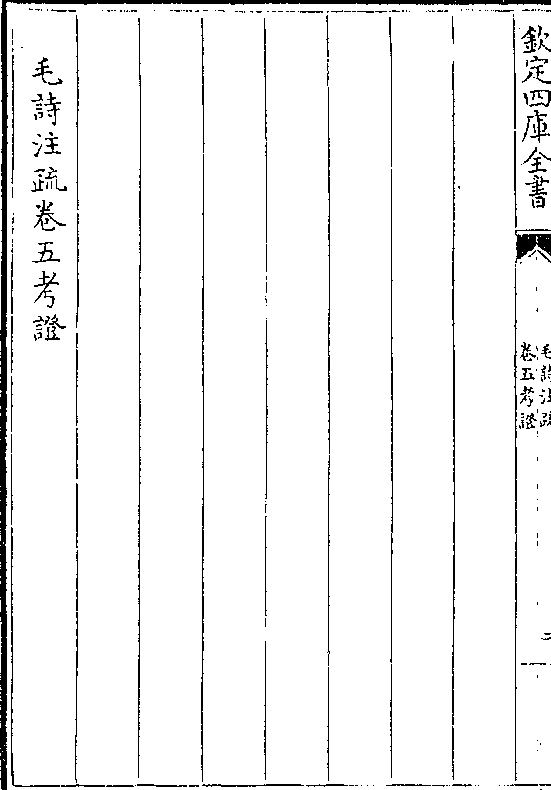 欽定四庫全書
毛詩注疏
卷五考證
二
毛詩注疏卷五考證